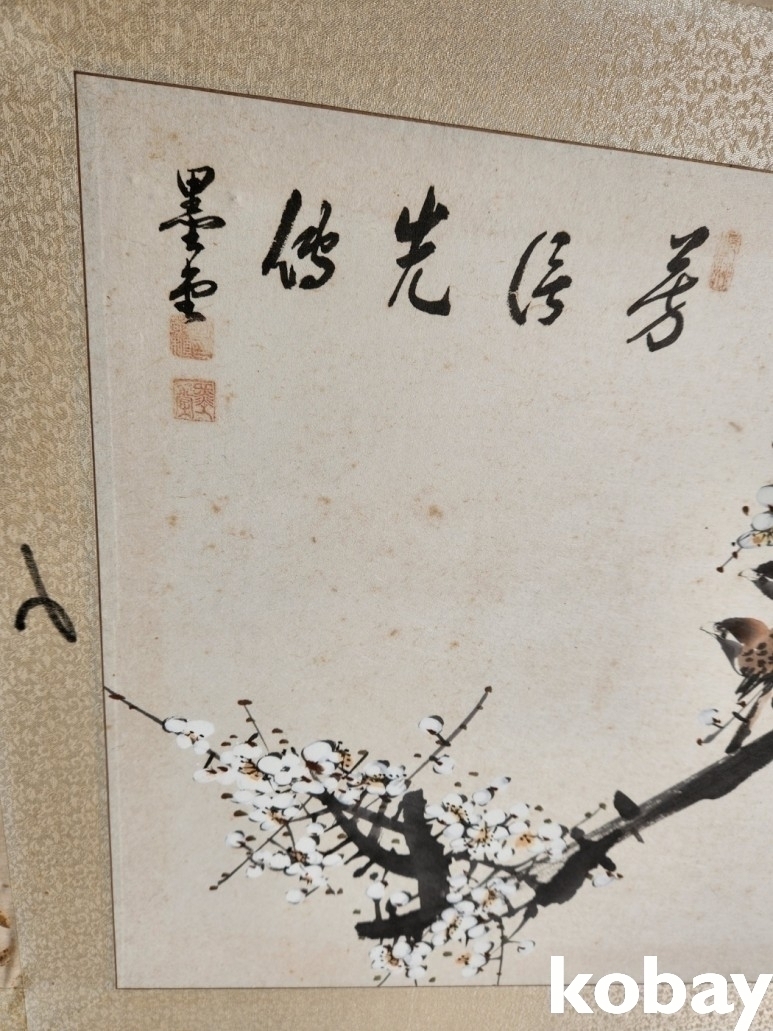 芳信先傳
墨
kobay